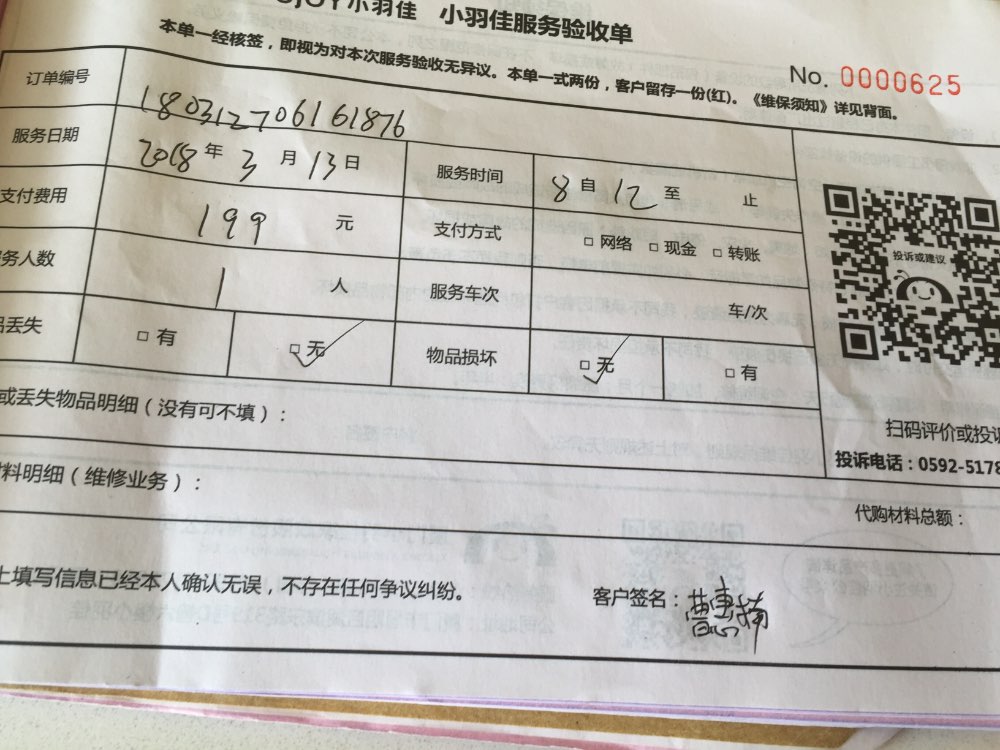 小羽佳 小羽佳服务验收单
本单一经核签，即视为对本次服务验收无异议。本单一式两份，客户留存一份(红)。《维保须知》详见背面。
No. 0000625
订单编号 180312706161876
服务日期 2018 年 3 月 13 日 服务时间 8 自 12 至 止
支付费用 199 元 支付方式 □ 网络 □ 现金 □ 转账
务人数 1 人 服务车次 车/次
丢失 □ 有 □ 无 物品损坏 □ 无 □ 有
投诉或建议
扫码评价或投诉
投诉电话：0592-5178
或丢失物品明细（没有可不填）：
料明细（维修业务）：
代购材料总额：
上填写信息已经本人确认无误，不存在任何争议纠纷。
客户签名：曹惠楠